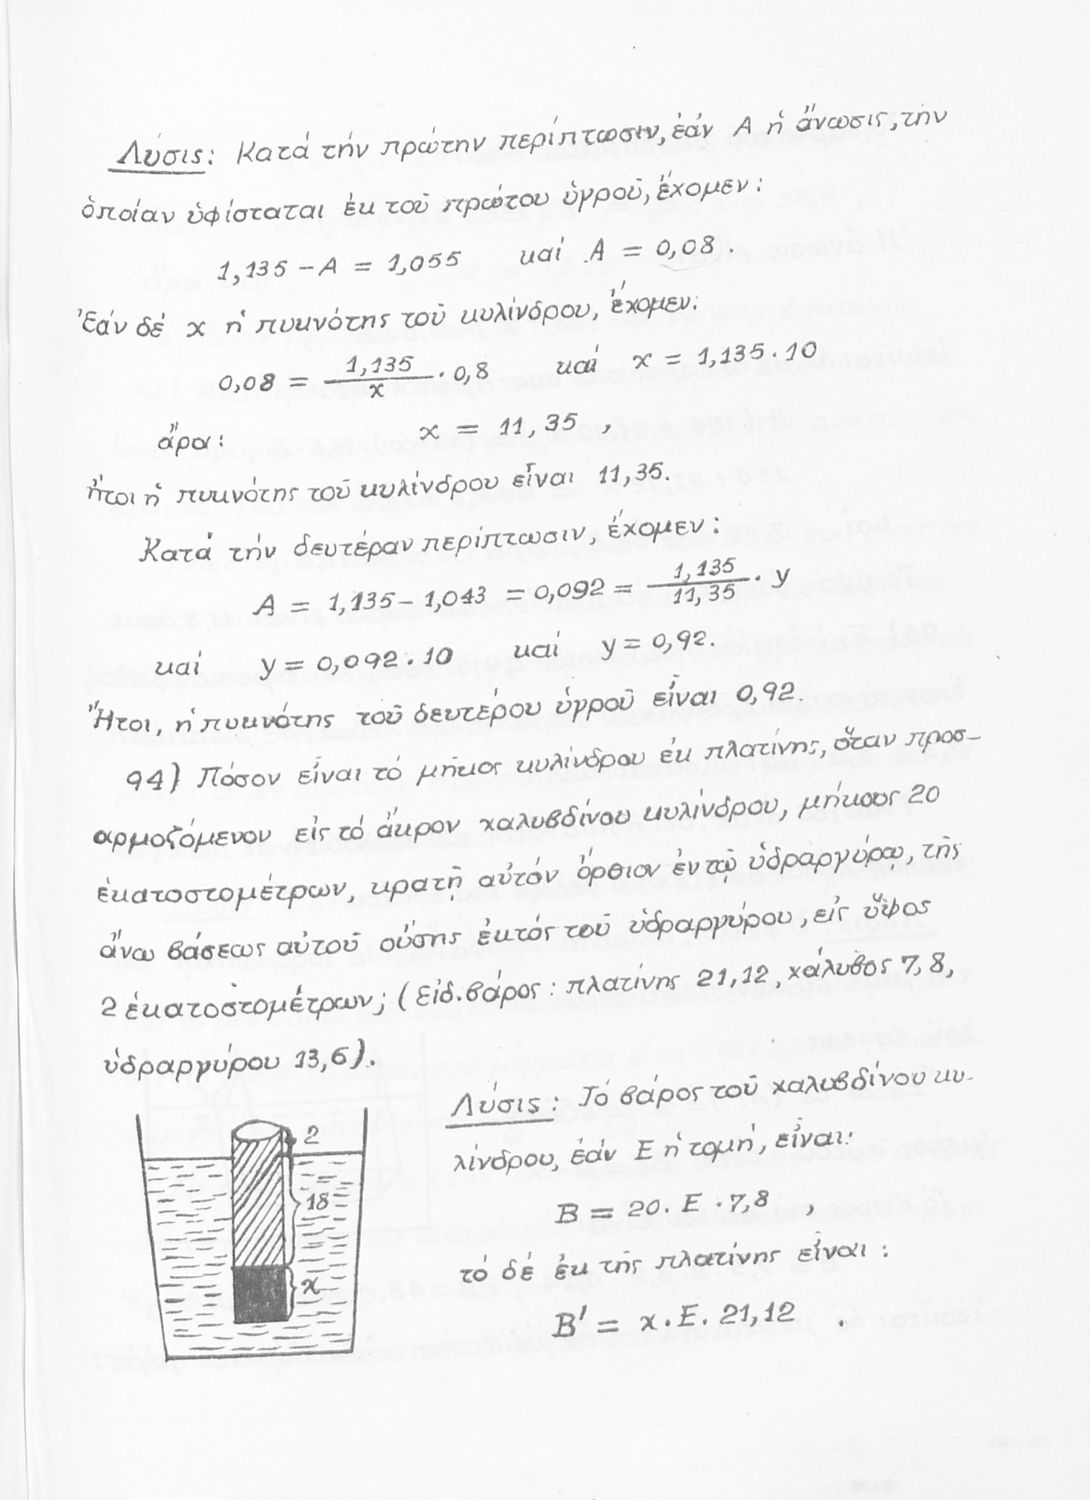 Λύσις: Κατά τήν πρώτην περίπτωσιν, ἐάν Α ἡ ἄνωσις, τήν
ὁποίαν ὑφίσταται ἐκ τοῦ πρώτου ὑγροῦ, ἔχομεν:
1,135 - Α = 1,055 καί Α = 0,08.
Ἐάν δέ x ἡ πυκνότης τοῦ κυλίνδρου, ἔχομεν:
0,08 = 1,135/x · 0,8 καί x = 1,135 · 10
ἄρα: x = 11,35 ,
ἤτοι ἡ πυκνότης τοῦ κυλίνδρου εἶναι 11,35.
Κατά τήν δευτέραν περίπτωσιν, ἔχομεν:
Α = 1,135 - 1,043 = 0,092 = 1,135/11,35 · y
καί y = 0,092 · 10 καί y = 0,92.
Ἤτοι, ἡ πυκνότης τοῦ δευτέρου ὑγροῦ εἶναι 0,92.
94) Πόσον εἶναι τό μῆκος κυλίνδρου ἐκ πλατίνης, ὅταν προσ-
αρμοζόμενον εἰς τό ἄκρον χαλυβδίνου κυλίνδρου, μήκους 20
ἑκατοστομέτρων, κρατῇ αὐτόν ὄρθιον ἐν τῷ ὑδραργύρῳ, τῆς
ἄνω βάσεως αὐτοῦ οὔσης ἐκτός τοῦ ὑδραργύρου, εἰς ὕψος
2 ἑκατοστομέτρων; (Εἰδ. βάρος: πλατίνης 21,12, χάλυβος 7,8,
ὑδραργύρου 13,6).
Λύσις: Τό βάρος τοῦ χαλυβδίνου κυ-
λίνδρου, ἐάν Ε ἡ τομή, εἶναι:
Β = 20. Ε · 7,8 ,
τό δέ ἐκ τῆς πλατίνης εἶναι:
Β' = x. Ε. 21,12
2
18
x